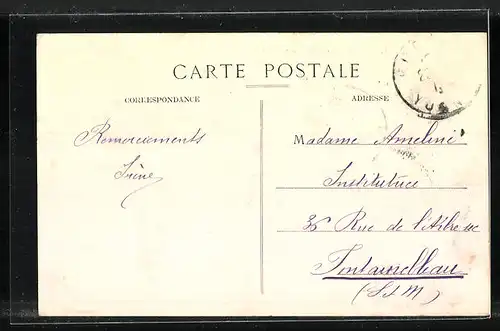 CARTE POSTALE
CORRESPONDANCE
ADRESSE
Remerciements
Irène
Madame Ameline
Institutrice
36 Rue de l'Arbre sec
Fontainebleau
(S et M)